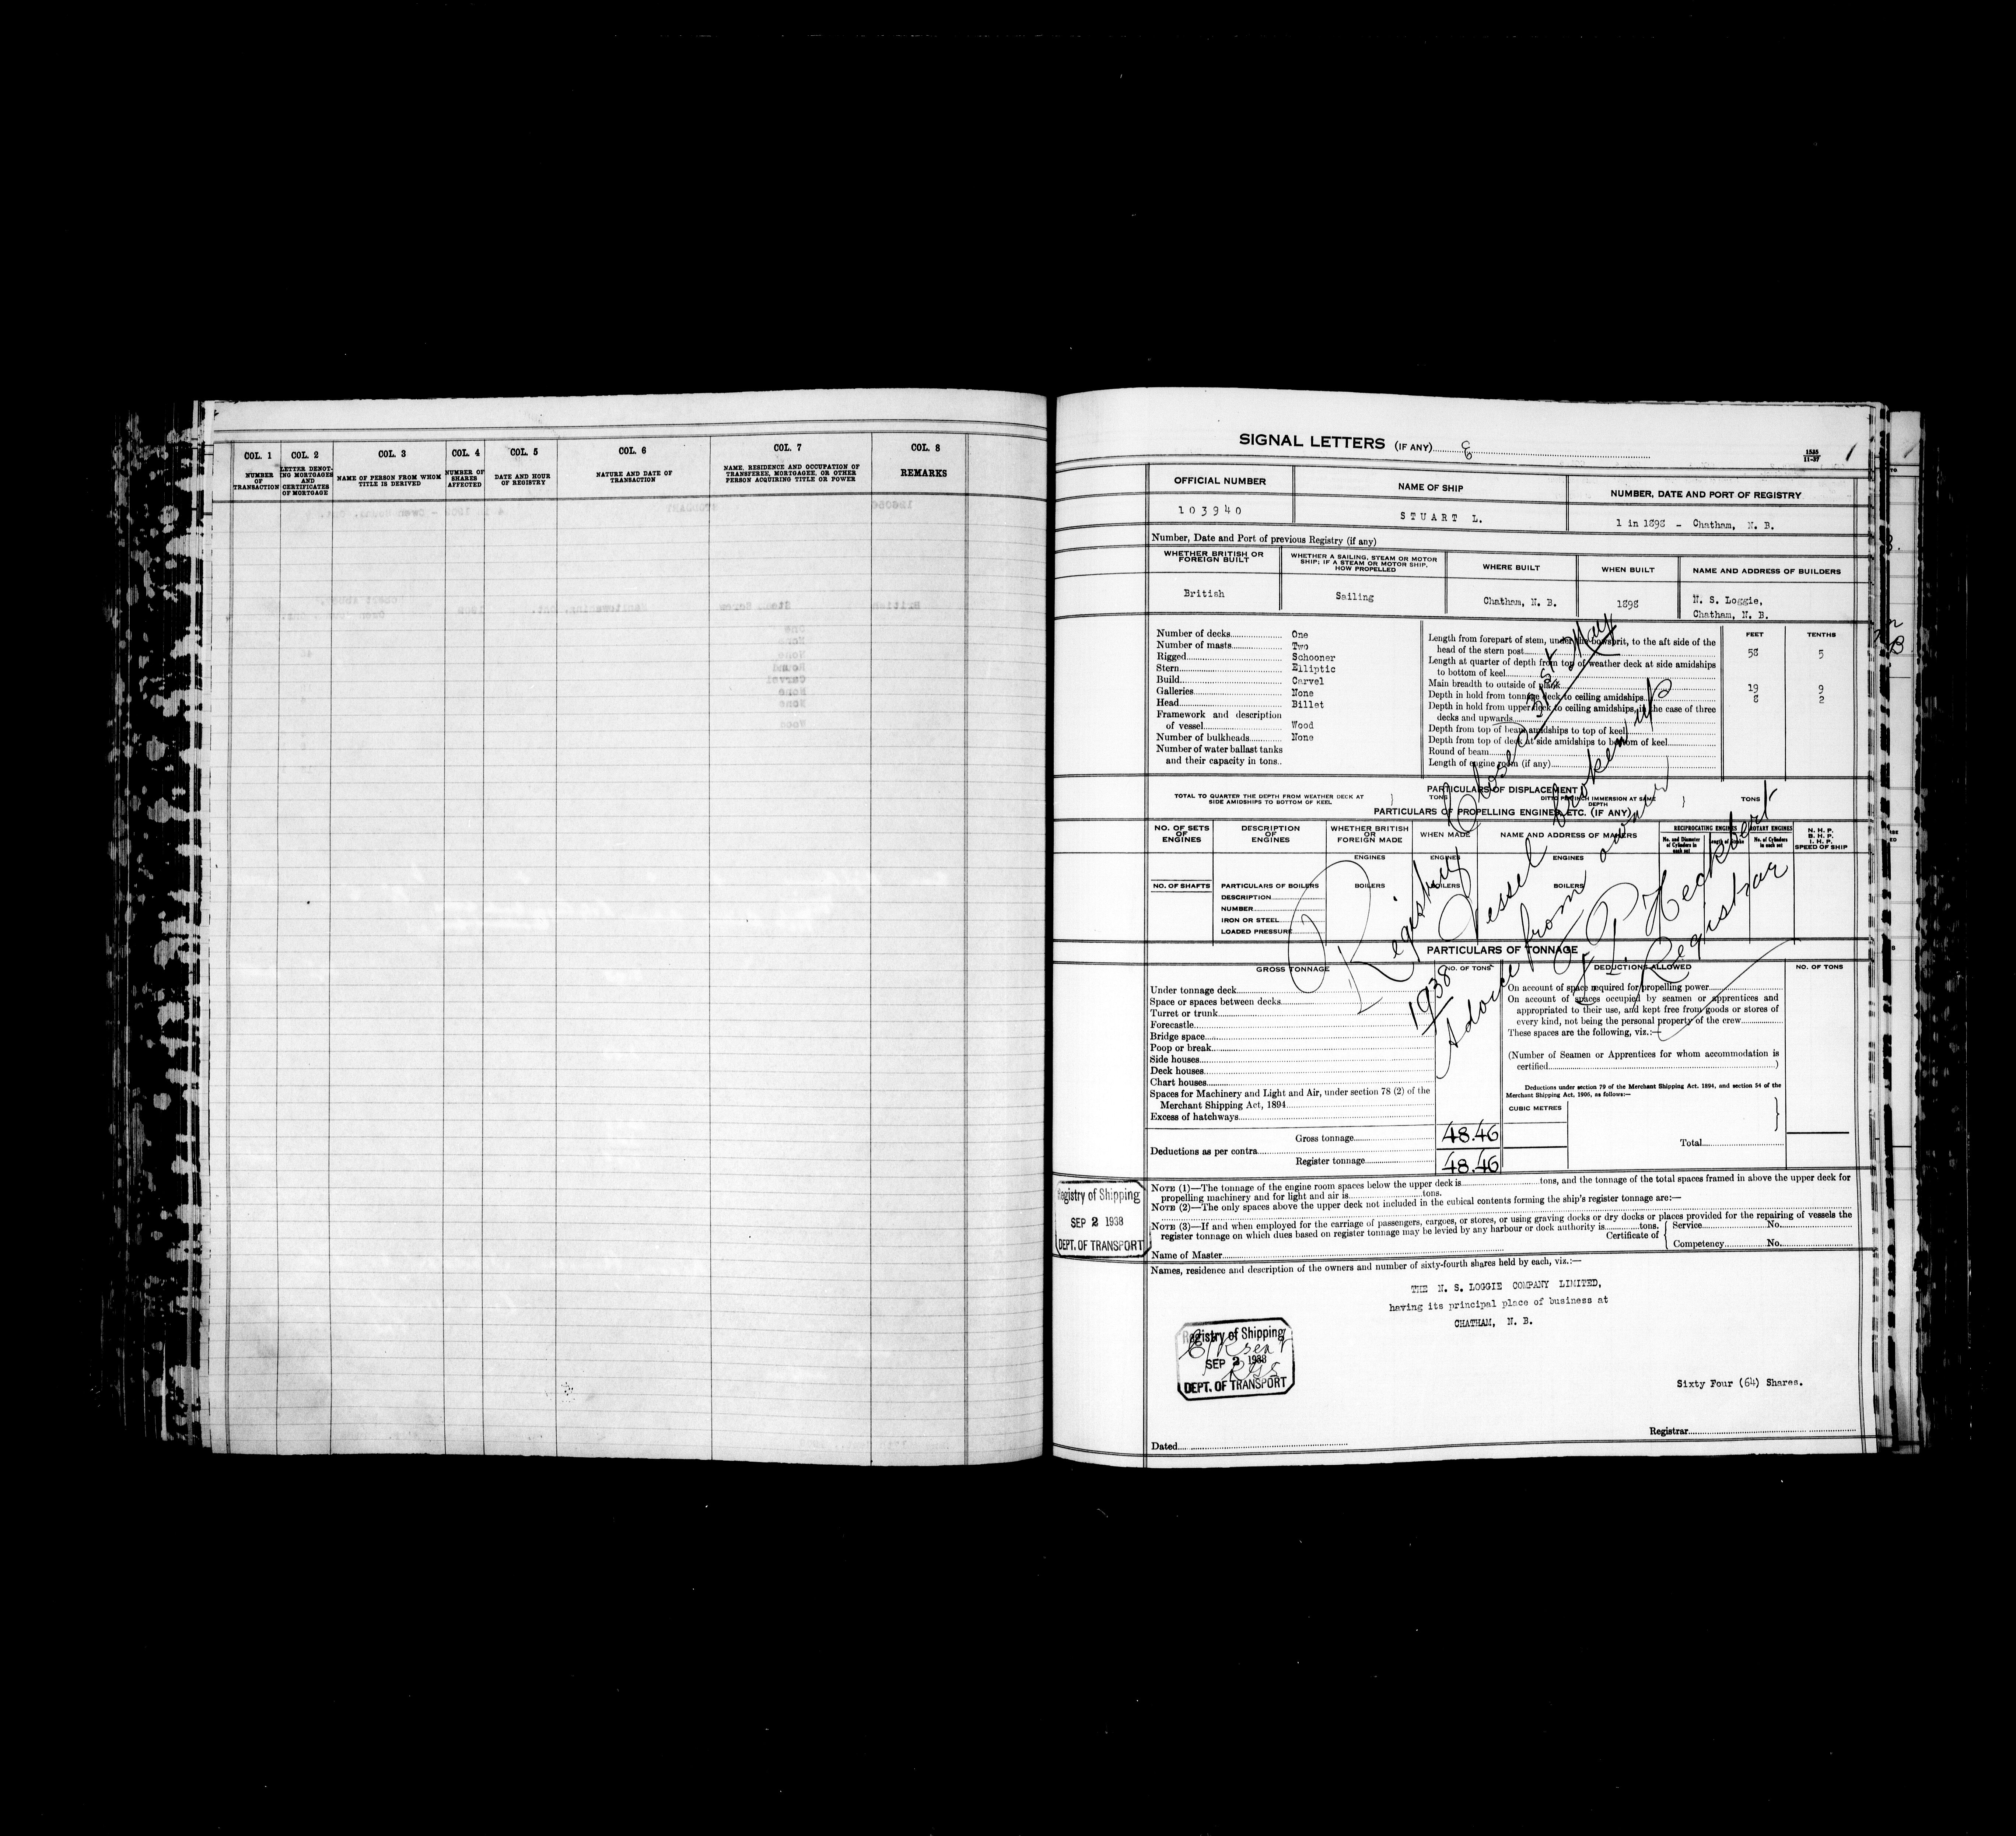 COL. 1
NUMBER
OF
TRANSACTION
COL. 2
LETTER DENOT-
ING MORTGAGES
AND
CERTIFICATES
OF MORTGAGE
COL. 3
NAME OF PERSON FROM WHOM
TITLE IS DERIVED
COL. 4
NUMBER OF
SHARES
AFFECTED
COL. 5
DATE AND HOUR
OF REGISTRY
COL. 6
NATURE AND DATE OF
TRANSACTION
COL. 7
NAME, RESIDENCE AND OCCUPATION OF
TRANSFEREE, MORTGAGEE, OR OTHER
PERSON ACQUIRING TITLE OR POWER
COL. 8
REMARKS
SIGNAL LETTERS (IF ANY)
1535
11-37
1
OFFICIAL NUMBER
103940
NAME OF SHIP
STUART L.
NUMBER, DATE AND PORT OF REGISTRY
1 in 1898 - Chatham, N. B.
Number, Date and Port of previous Registry (if any)
WHETHER BRITISH OR
FOREIGN BUILT
British
WHETHER A SAILING, STEAM OR MOTOR
SHIP; IF A STEAM OR MOTOR SHIP,
HOW PROPELLED
Sailing
WHERE BUILT
Chatham, N. B.
WHEN BUILT
1898
NAME AND ADDRESS OF BUILDERS
N. S. Loggie,
Chatham, N. B.
Number of decks One
Number of masts Two
Rigged Schooner
Stern Elliptic
Build Carvel
Galleries None
Head Billet
Framework and description
of vessel Wood
Number of bulkheads None
Number of water ballast tanks
and their capacity in tons
FEET TENTHS
Length from forepart of stem, under the bowsprit, to the aft side of the
head of the stern post 58 5
Length at quarter of depth from top of weather deck at side amidships
to bottom of keel
Main breadth to outside of plank 19 9
Depth in hold from tonnage deck to ceiling amidships 8 2
Depth in hold from upper deck to ceiling amidships, in the case of three
decks and upwards
Depth from top of beam amidships to top of keel
Depth from top of deck at side amidships to bottom of keel
Round of beam
Length of engine room (if any)
PARTICULARS OF DISPLACEMENT
TOTAL TO QUARTER THE DEPTH FROM WEATHER DECK AT
SIDE AMIDSHIPS TO BOTTOM OF KEEL
TONS
DITTO PER INCH IMMERSION AT SAME
DEPTH
TONS
PARTICULARS OF PROPELLING ENGINES, ETC. (IF ANY)
NO. OF SETS
OF
ENGINES
DESCRIPTION
OF
ENGINES
WHETHER BRITISH
OR
FOREIGN MADE
WHEN MADE
NAME AND ADDRESS OF MAKERS
RECIPROCATING ENGINES
No. and Diameter
of Cylinders in
each set
Length of Stroke
ROTARY ENGINES
No. of Cylinders
in each set
N. H. P.
B. H. P.
I. H. P.
SPEED OF SHIP
ENGINES ENGINES ENGINES
NO. OF SHAFTS
PARTICULARS OF BOILERS
BOILERS BOILERS BOILERS
DESCRIPTION
NUMBER
IRON OR STEEL
LOADED PRESSURE
Registry Closed 31st May
1938 Vessel broken up
Advice from owner
Heckbert
Registrar
PARTICULARS OF TONNAGE
GROSS TONNAGE
NO. OF TONS
DEDUCTIONS ALLOWED
NO. OF TONS
Under tonnage deck
Space or spaces between decks
Turret or trunk
Forecastle
Bridge space
Poop or break
Side houses
Deck houses
Chart houses
Spaces for Machinery and Light and Air, under section 78 (2) of the
Merchant Shipping Act, 1894
Excess of hatchways
Gross tonnage 48.46
Deductions as per contra
Register tonnage 48.46
On account of space required for propelling power
On account of spaces occupied by seamen or apprentices and
appropriated to their use, and kept free from goods or stores of
every kind, not being the personal property of the crew
These spaces are the following, viz.:—
(Number of Seamen or Apprentices for whom accommodation is
certified )
Deductions under section 79 of the Merchant Shipping Act. 1894, and section 54 of the
Merchant Shipping Act, 1906, as follows:—
CUBIC METRES
Total
NOTE (1)—The tonnage of the engine room spaces below the upper deck is tons, and the tonnage of the total spaces framed in above the upper deck for
propelling machinery and for light and air is tons.
NOTE (2)—The only spaces above the upper deck not included in the cubical contents forming the ship's register tonnage are:—
NOTE (3)—If and when employed for the carriage of passengers, cargoes, or stores, or using graving docks or dry docks or places provided for the repairing of vessels the
register tonnage on which dues based on register tonnage may be levied by any harbour or dock authority is tons.
Certificate of
Service No.
Competency No.
Name of Master
Registry of Shipping
SEP 2 1938
DEPT. OF TRANSPORT
Names, residence and description of the owners and number of sixty-fourth shares held by each, viz.:—
THE N. S. LOGGIE COMPANY LIMITED,
having its principal place of business at
CHATHAM, N. B.
Registry of Shipping
SEP 2 1938
DEPT. OF TRANSPORT
Sixty Four (64) Shares.
Dated
Registrar